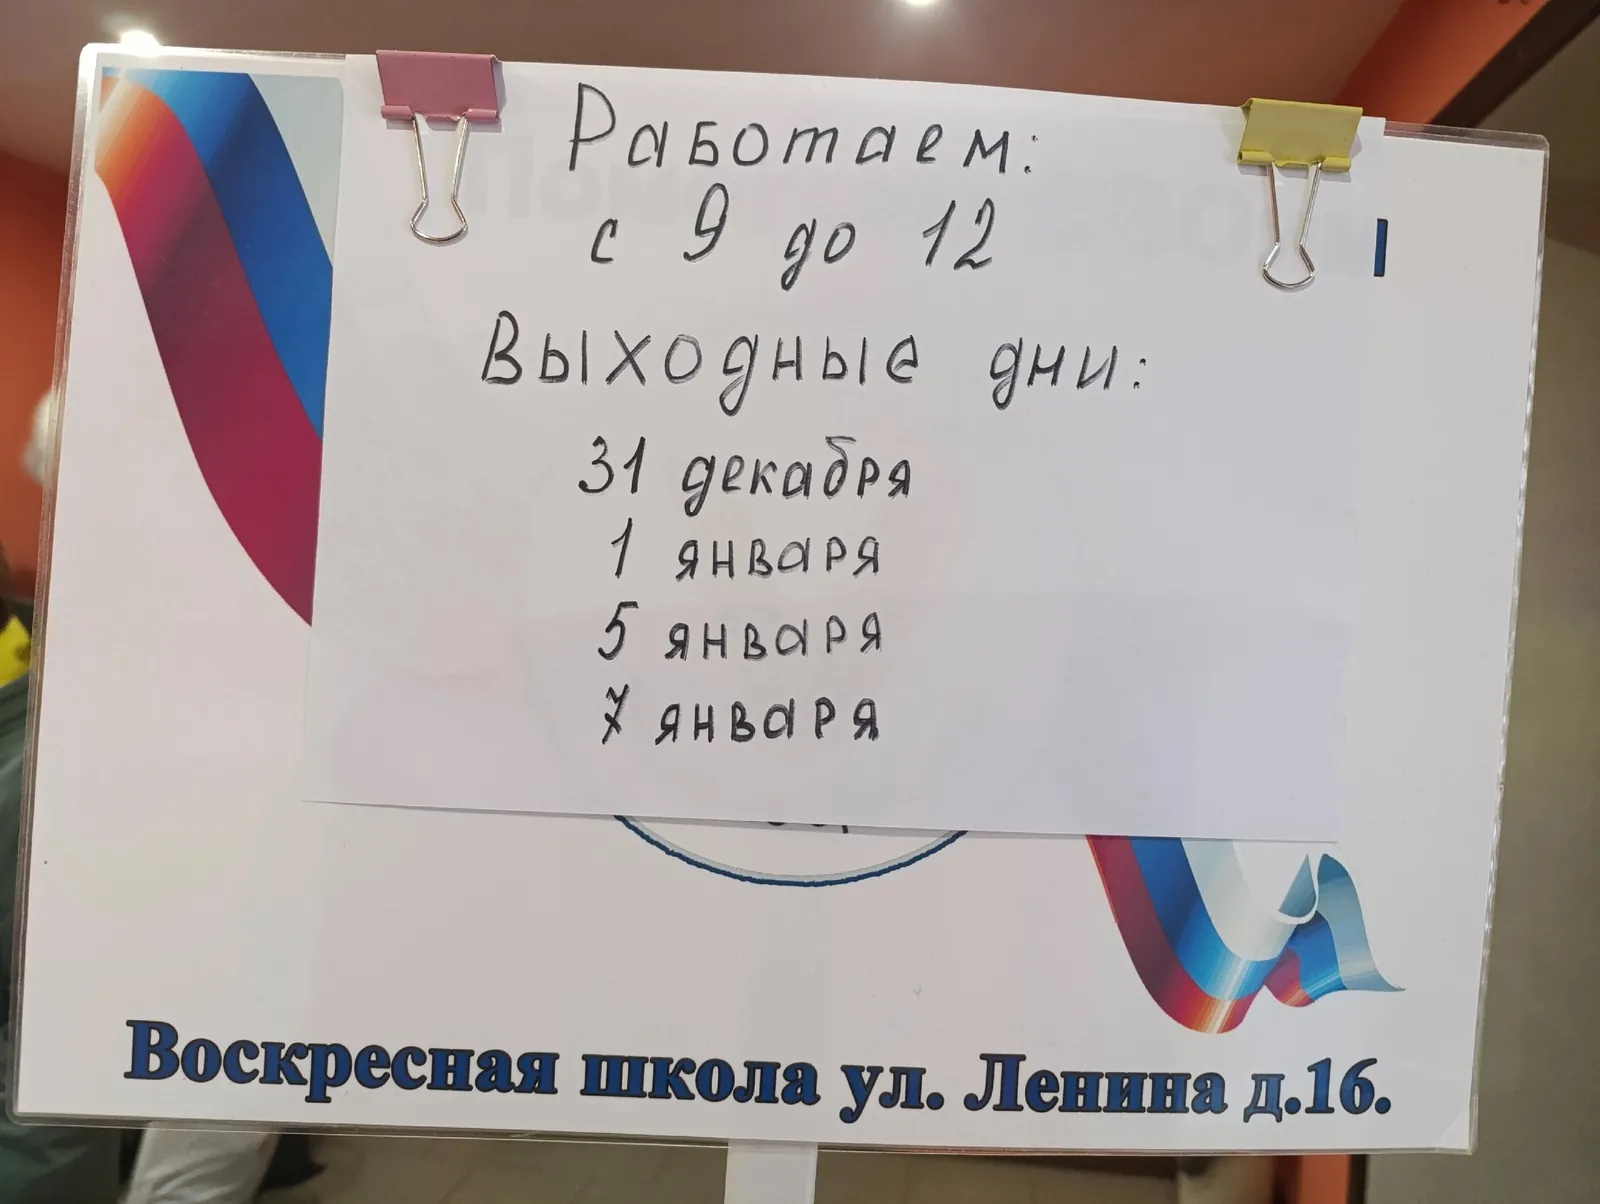 Работаем:
с 9 до 12
Выходные дни:
31 декабря
1 января
5 января
7 января
Воскресная школа ул. Ленина д.16.